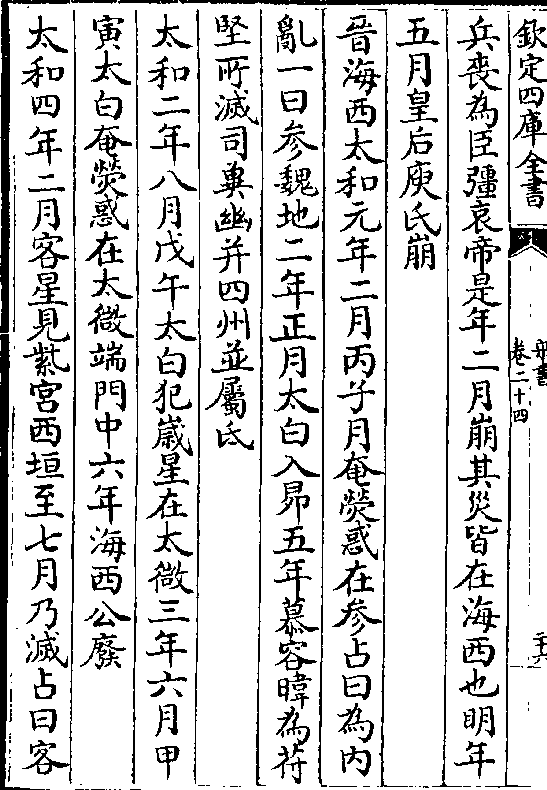 欽定四庫全書
卷二十四
二十六
兵喪為臣彊哀帝是年二月崩其災皆在海西也明年
五月皇后庾氏崩
晉海西太和元年二月丙子月奄熒惑在参占曰為内
亂一曰参魏地二年正月太白入昴五年慕容暐為苻
堅所滅司冀幽并四州並屬氐
太和二年八月戊午太白犯嵗星在太微三年六月甲
寅太白奄熒惑在太微端門中六年海西公廢
太和四年二月客星見紫宫西垣至七月乃滅占曰客